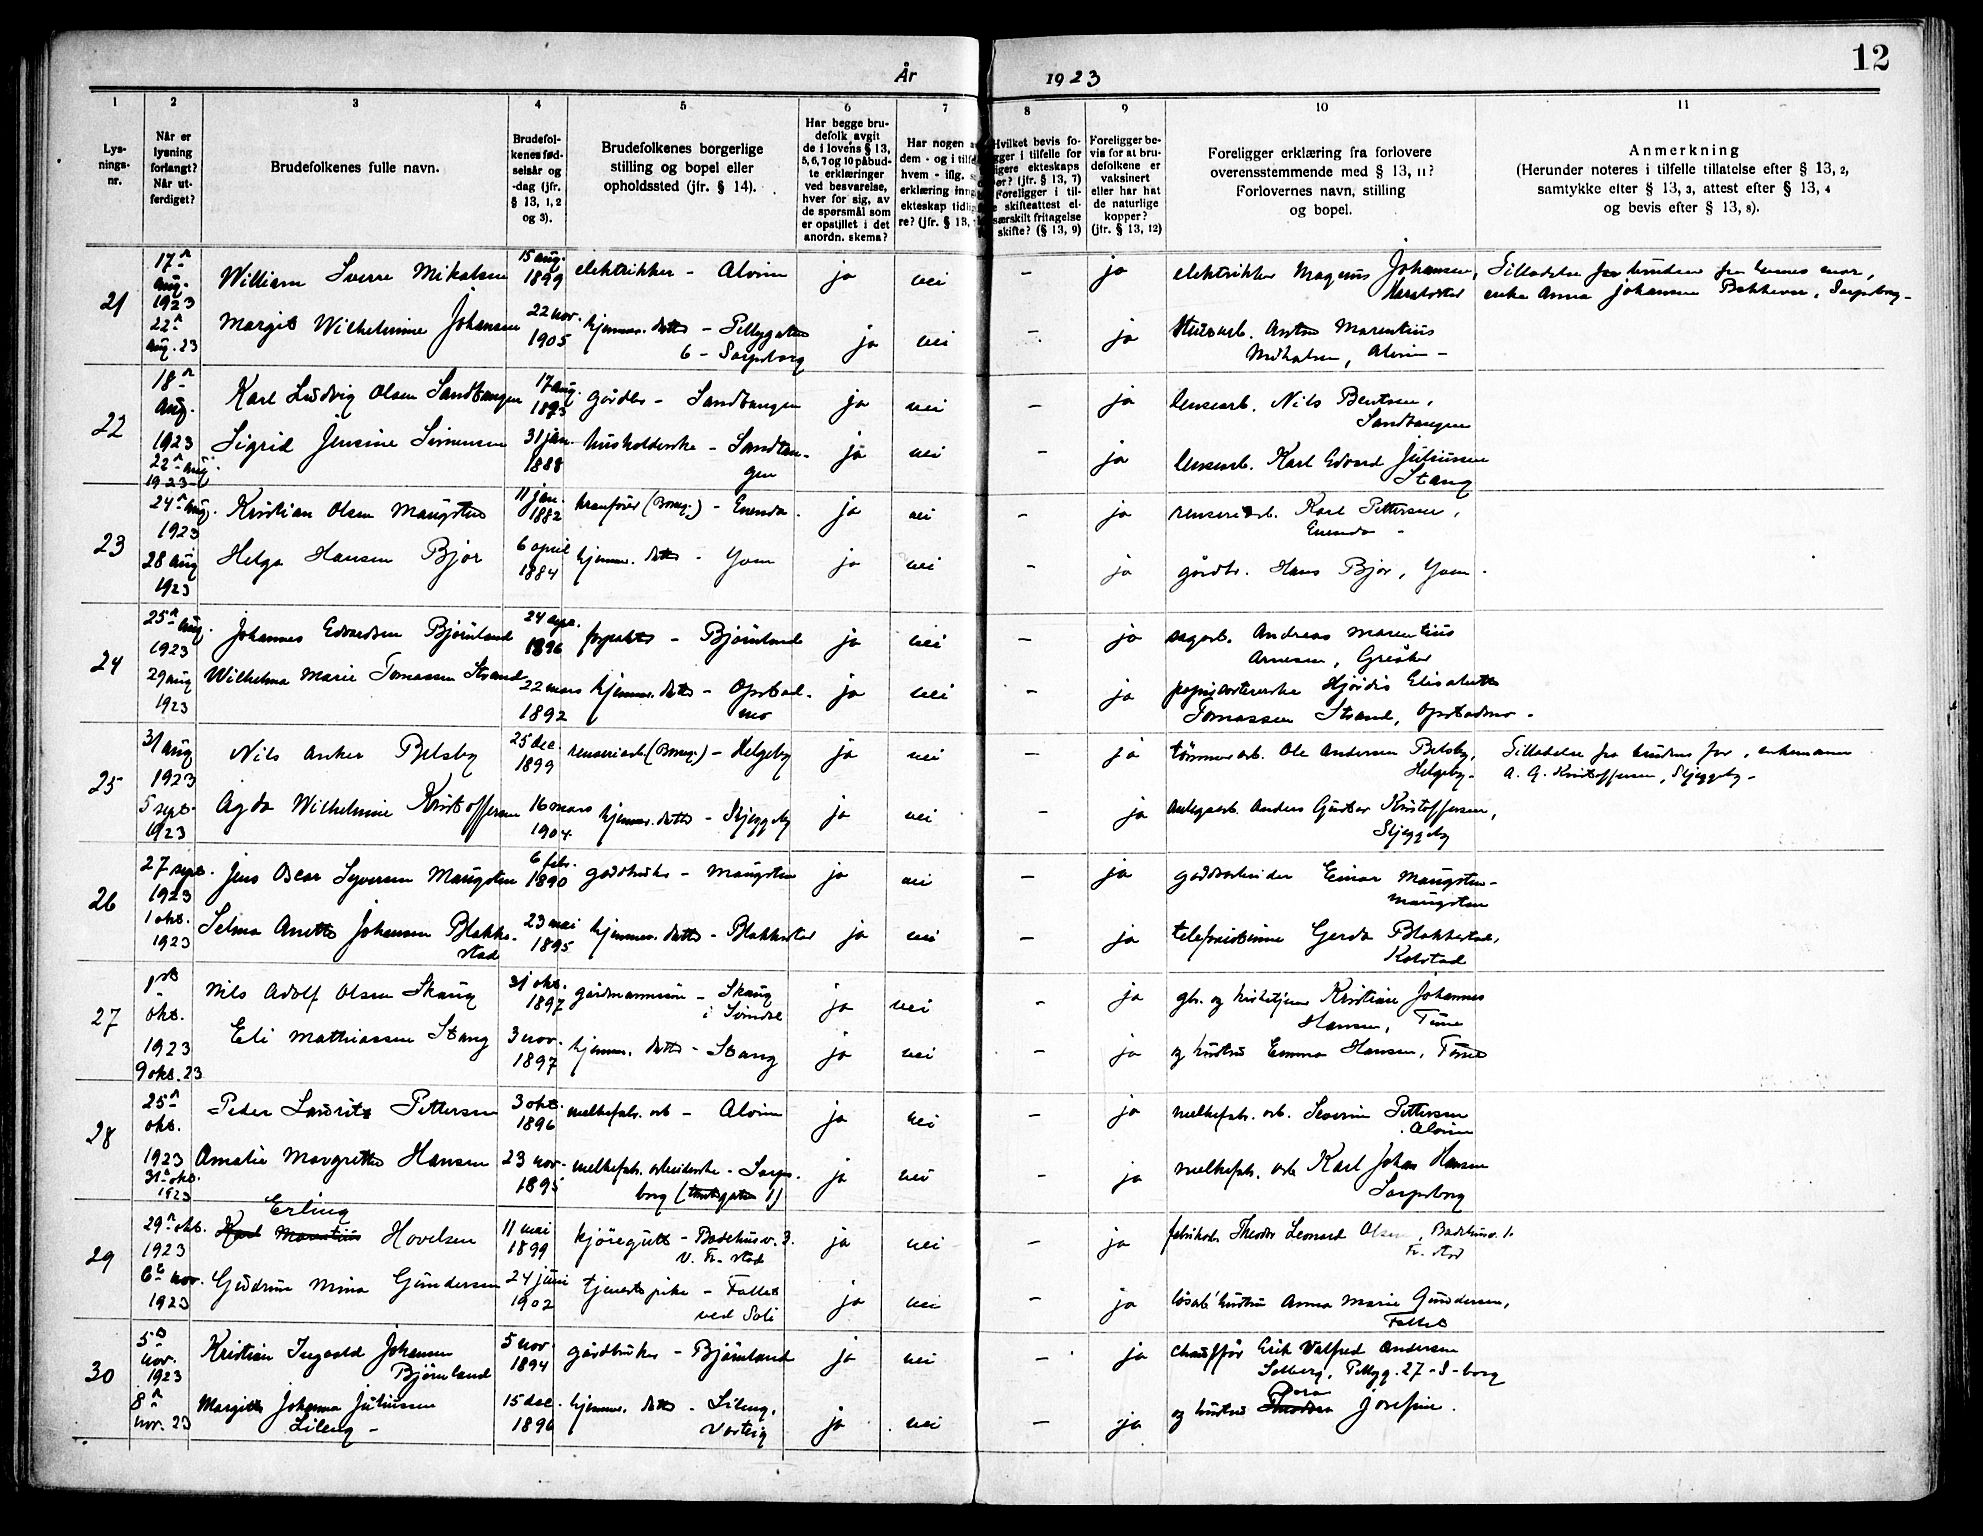 12
År 1923
1 2 3 4 5 6 7 8 9 10 11
Lys-
nings-
nr.
Når er
lysning
forlangt?
Når ut-
ferdiget?
Brudefolkenes fulle navn.
Brudefol-
kenes fød-
selsår og
-dag (jfr.
§ 13, 1, 2
og 3).
Brudefolkenes borgerlige
stilling og bopel eller
opholdssted (jfr. § 14).
Har begge bru-
defolk avgit
de i lovens § 13,
5, 6, 7 og 10 påbud-
te erklæringer
ved besvarelse,
hver for sig, av
de spørsmål som
er opstillet i det
anordn. skema?
Har nogen
dem - og i tilfel
hvem - iflg.
erklæring inng
ekteskap tidlig
re? (jfr. § 13,
Hvilket bevis fo-
gger i tilfelle for
igere ekteskaps
er? (jfr. § 13, 7)
Foreligger i til-
e skifteattest el-
særskilt fritagelse
skifte? (§ 13, 9)
Foreligger be-
vis for at bru-
defolkene er
vaksinert
eller har hat
de naturlige
kopper?
(jfr. § 13, 12)
Foreligger erklæring fra forlovere
overensstemmende med § 13, 11?
Forlovernes navn, stilling
og bopel.
Anmerkning
(Herunder noteres i tilfelle tillatelse efter § 13, 2,
samtykke efter § 13, 3, attest efter § 13, 4
og bevis efter § 13, 8).
21
17 aug. 1923
William Sverre Mikalsen 15 aug. 1899 elektrikker - Alvim ja nei - ja elektrikker Magnus Johansen, Tilladelse fra brudens mor,
enke Anna Johansen Bakkevei, Sarpsborg -
22 aug. 23
Margit Wilhelmine Johansen 22 nov. 1905 hjemmev. datter - Pellygaten
6 - Sarpsborg ja nei - ja Anton Marentius
Mikalsen, Alvim -
22
18 aug. 1923
Karl Ludvig Olsen Sandtangen 17 aug. 1893 gårdbr - Sandtangen ja nei - ja lensearb. Nils Bentsen,
Sandtangen
22 aug. 1923
Sigrid Jensine Simensen 31 jan. 1888 husholderske - Sandtan-
gen ja nei - ja lensearb. Karl Edvard Juliussen
Stang
23
24 aug. 1923
Kristian Olsen Maugsten 11 jan. 1882 kranfører (Borreg.) - Enenda. ja nei - ja renseriarb. Karl Pettersen,
Enenda -
28 aug 1923
Helga Hansen Bjør 6 april 1884 hjemmev. datter - Yven ja nei - ja gårdbr. Hans Bjør, Yven.
24
25 aug. 1923
Johannes Edvardsen Bjørnland 24 apr. 1896 forpakter - Bjørnland ja nei - ja sagarb. Andreas Marentius
Arnesen, Greåker
29 aug 1923
Wilhelma Marie Tomassen Strand 22 mars 1892 hjemmev. datter - Opstad-
mo ja nei - ja papirsorterерske Hjørdis Elisabeth
Tomassen Strand, Opstadmo.
25
31 aug 1923
Nils Anker Pelsby 25 dec. 1899 renseriarb. (Borreg.) - Helgeby ja nei - ja tømmerarb. Ole Andersen Pelsby,
Helgeby - Tilladelse fra brudens far, enkemann
A. G. Kristoffersen, Skjeggeby -
5 sept. 1923
Agda Wilhelmine Kristoffersen 16 mars 1904 hjemmev. datter - Skjeggeby ja nei - ja anlegsarb. Anders Gustav Kristoffersen,
Skjeggeby
26
27 sept. 1923
Jens Oscar Syversen Maugsten 6 febr. 1890 gårdbruker - Maugsten ja nei - ja gårdsarbeider Einar Maugsten -
Maugsten
1 okt. 1923
Selma Anette Johansen Blakke-
stad 23 mai 1895 hjemmev. datter - Blakkestad ja nei - ja telefonistinne Gerda Blakkestad,
Kolstad
27
1ste okt. 1923
Nils Adolf Olsen Skaug 31 okt. 1897 gårdmannssøn - Skaug
i Svindal ja nei - ja gbr. og kirketjener Kristian Johannes
Hansen, Tune
9 okt. 23
Eli Mathiassen Stang 3 nov. 1897 hjemmev. datter - Stang ja nei - ja og hustru Emma Hansen, Tune
28
25 okt. 1923
Peder Laurits Pettersen 3 okt. 1896 melkefabr. arb - Alvim ja nei - ja melkefabr. arb. Severin Pettersen
Alvim
31 okt. 1923
Amalie Margrethe Hansen 23 nov. 1895 melkefabr. arbeiderske - Sarps-
borg ( 1) ja nei - ja melkefabr. arb Karl Johan Hansen
Sarpsborg
29
29 okt. 1923
Erling
Karl Marentius Hovelsen 11 mai 1899 kjøregutt - Badehusv. 3.
V. Fr. stad ja nei ja fabrikarb. Theodor Leonard Olsen, Badehusv. 1.
Fr. stad
6 nov. 1923
Gudrun Mina Gundersen 24 juni 1902 tjenestepike - Fallet
ved Soli ja nei - ja hustru Anna Marie Gundersen,
Fallet
30
5 nov. 1923
Kristian Ingvald Johansen
Bjørnland 5 nov. 1894 gårdbruker - Bjørnland ja nei - ja chauffør Erik Valfred Andersen
Solberg, Pellyg. 27 - S-borg
8 nov. 23
Margith Johanna Juliussen
Lileng - 15 dec. 1896 hjemmev. datter - Lileng,
Varteig ja nei - ja og hustru Dora Josefine.